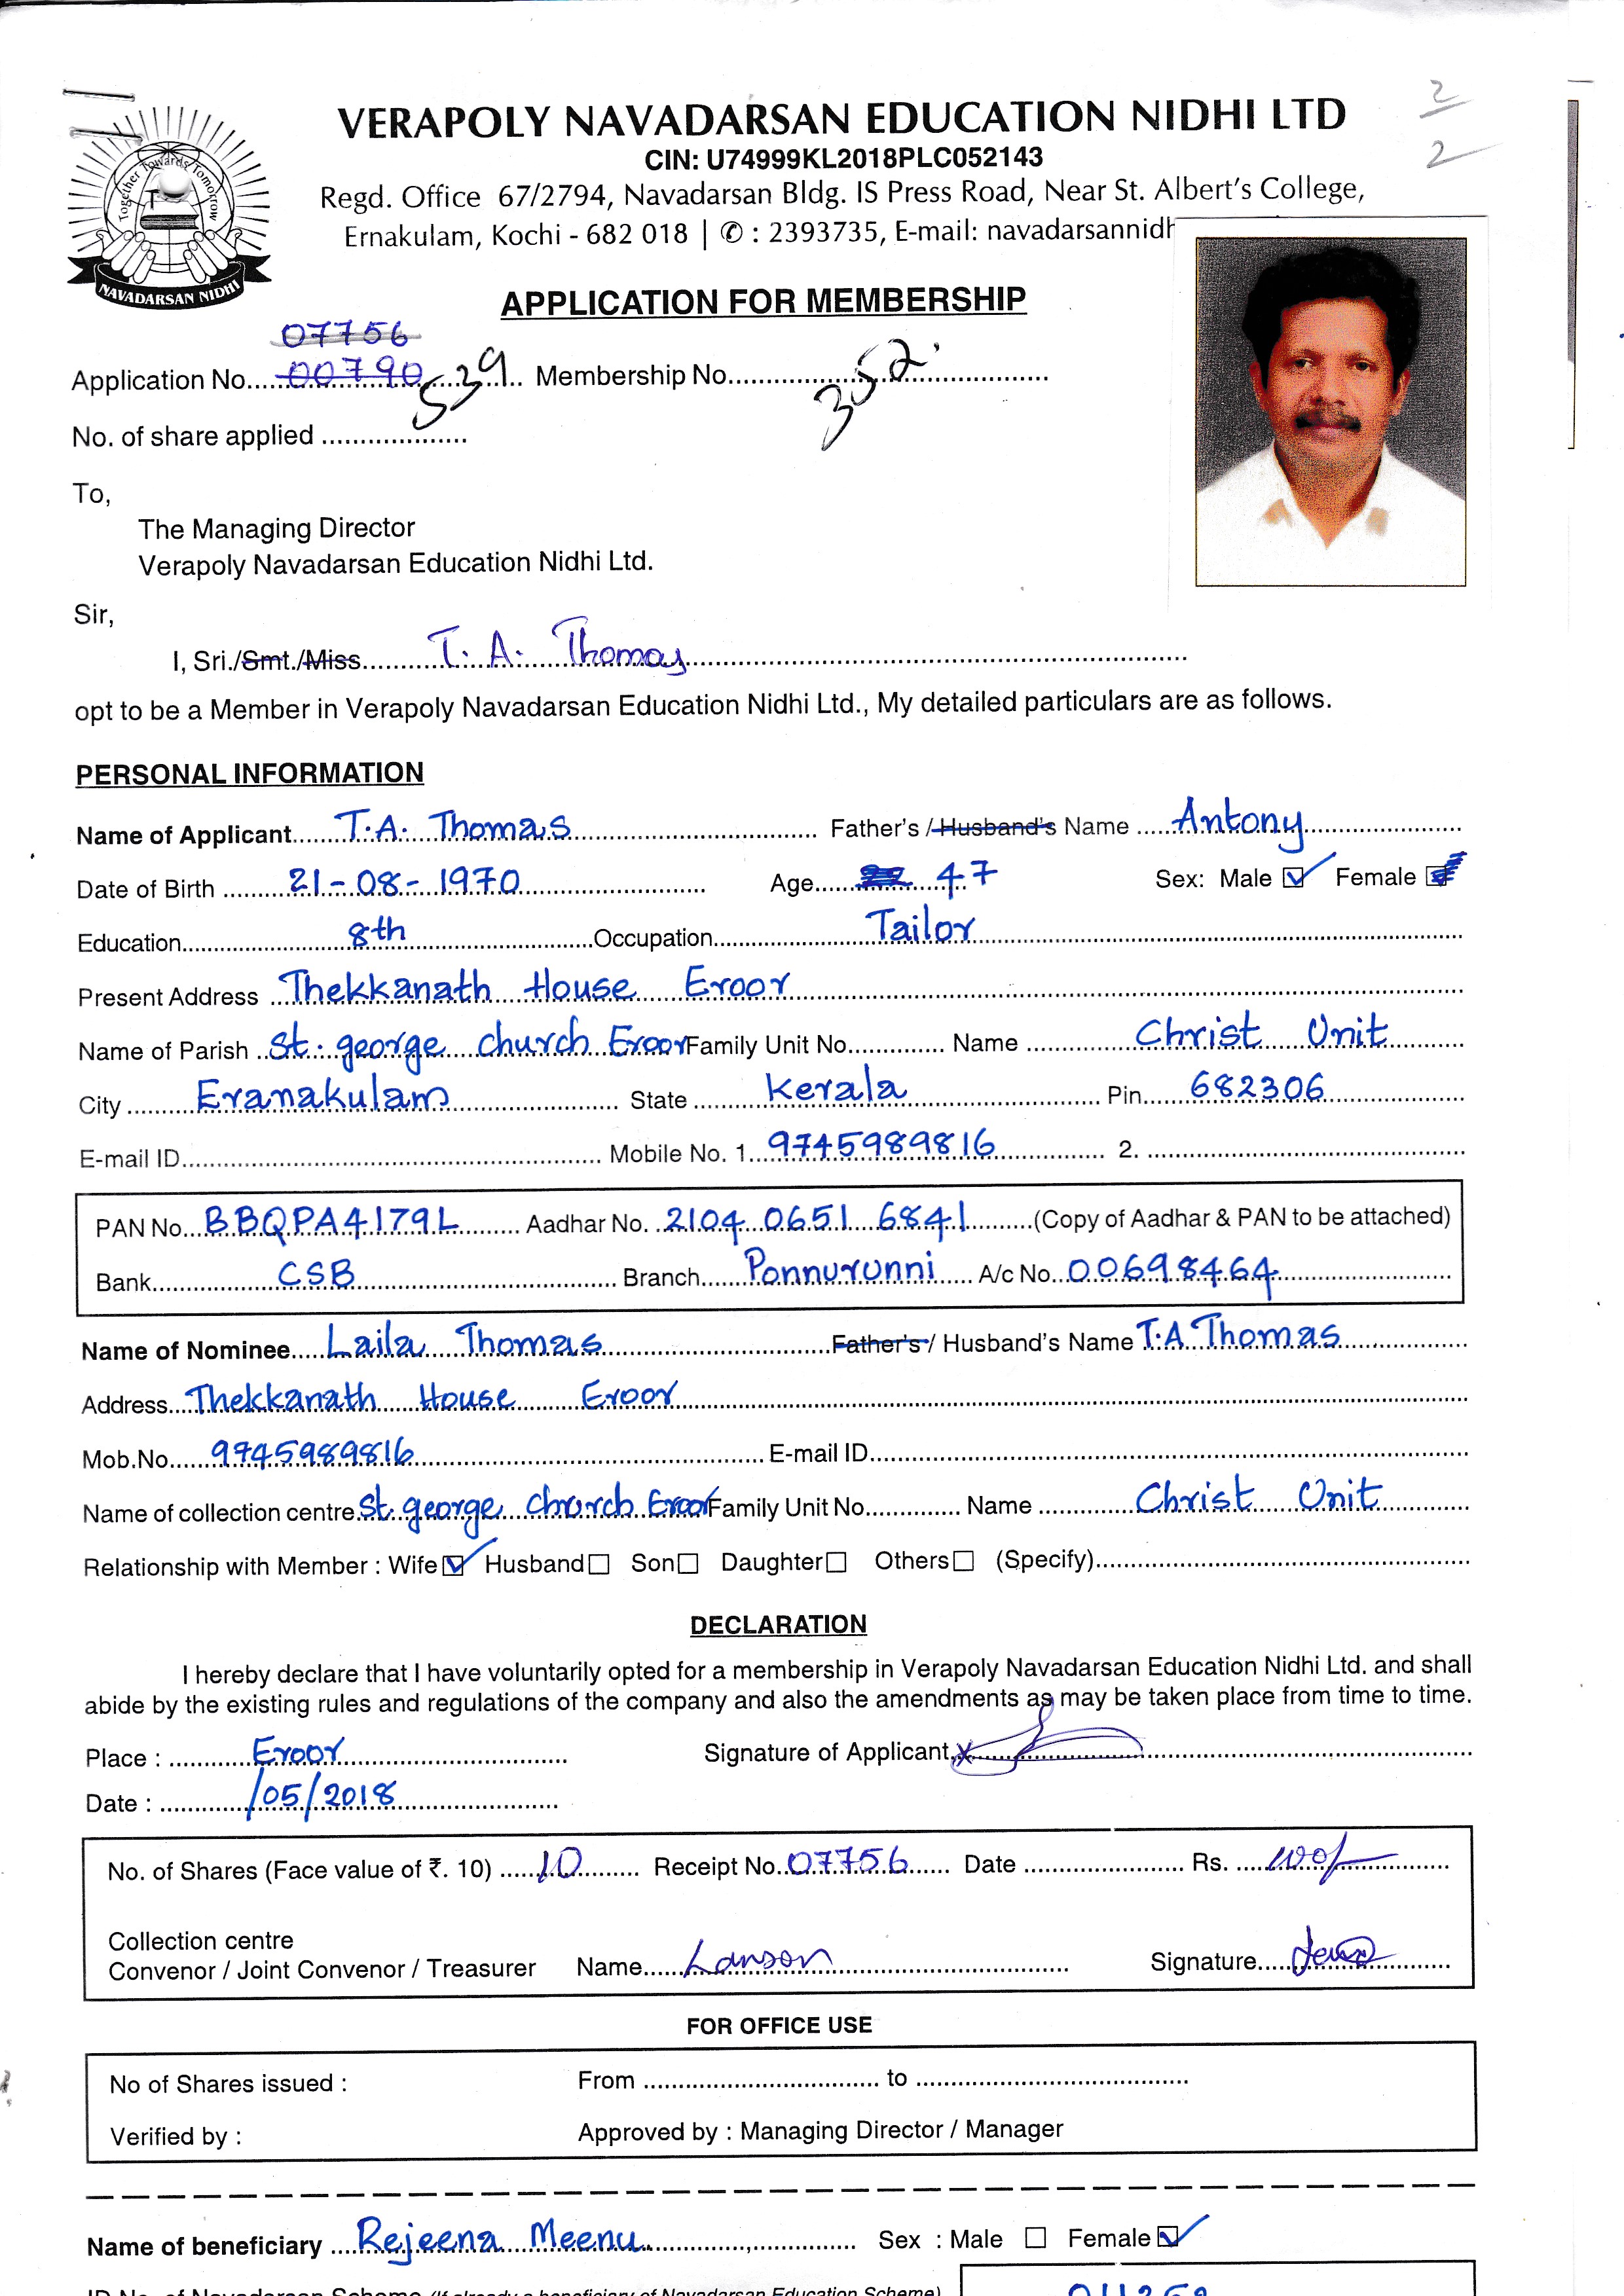 2
2
Together Towards Tomorrow
NAVADARSAN NIDHI
VERAPOLY NAVADARSAN EDUCATION NIDHI LTD
CIN: U74999KL2018PLC052143
Regd. Office 67/2794, Navadarsan Bldg. IS Press Road, Near St. Albert's College,
Ernakulam, Kochi - 682 018 | ✆ : 2393735, E-mail: navadarsannidh
APPLICATION FOR MEMBERSHIP
07756
Application No. 00790 539 Membership No. 352.
No. of share applied
To,
The Managing Director
Verapoly Navadarsan Education Nidhi Ltd.
Sir,
I, Sri./Smt./Miss T. A. Thomas
opt to be a Member in Verapoly Navadarsan Education Nidhi Ltd., My detailed particulars are as follows.
PERSONAL INFORMATION
Name of Applicant T.A. Thomas Father's / Husband's Name Antony
Date of Birth 21-08-1970 Age 47 Sex: Male Female
Education 8th Occupation Tailor
Present Address Thekkanath House Eroor
Name of Parish St. george church Eroor Family Unit No. Name Christ Unit
City Eranakulam State Kerala Pin 682306
E-mail ID Mobile No. 1 9745989816 2.
PAN No. BBQPA4179L Aadhar No. 2104 0651 6841 (Copy of Aadhar & PAN to be attached)
Bank CSB Branch Ponnurunni A/c No. 00698464
Name of Nominee Laila Thomas Father's / Husband's Name T.A. Thomas
Address Thekkanath House Eroor
Mob.No. 9745989816 E-mail ID
Name of collection centre St. george church Eroor Family Unit No. Name Christ Unit
Relationship with Member : Wife Husband Son Daughter Others (Specify)
DECLARATION
I hereby declare that I have voluntarily opted for a membership in Verapoly Navadarsan Education Nidhi Ltd. and shall
abide by the existing rules and regulations of the company and also the amendments as may be taken place from time to time.
Place : Eroor Signature of Applicant x
Date : /05/2018
No. of Shares (Face value of ₹. 10) 10 Receipt No. 07756 Date Rs. 100/-
Collection centre
Convenor / Joint Convenor / Treasurer Name Lanson Signature
FOR OFFICE USE
No of Shares issued : From to
Verified by : Approved by : Managing Director / Manager
Name of beneficiary Rejeena Meenu Sex : Male Female
ID No. of Navadarsan Scheme (If already a beneficiary of Navadarsan Education Scheme)